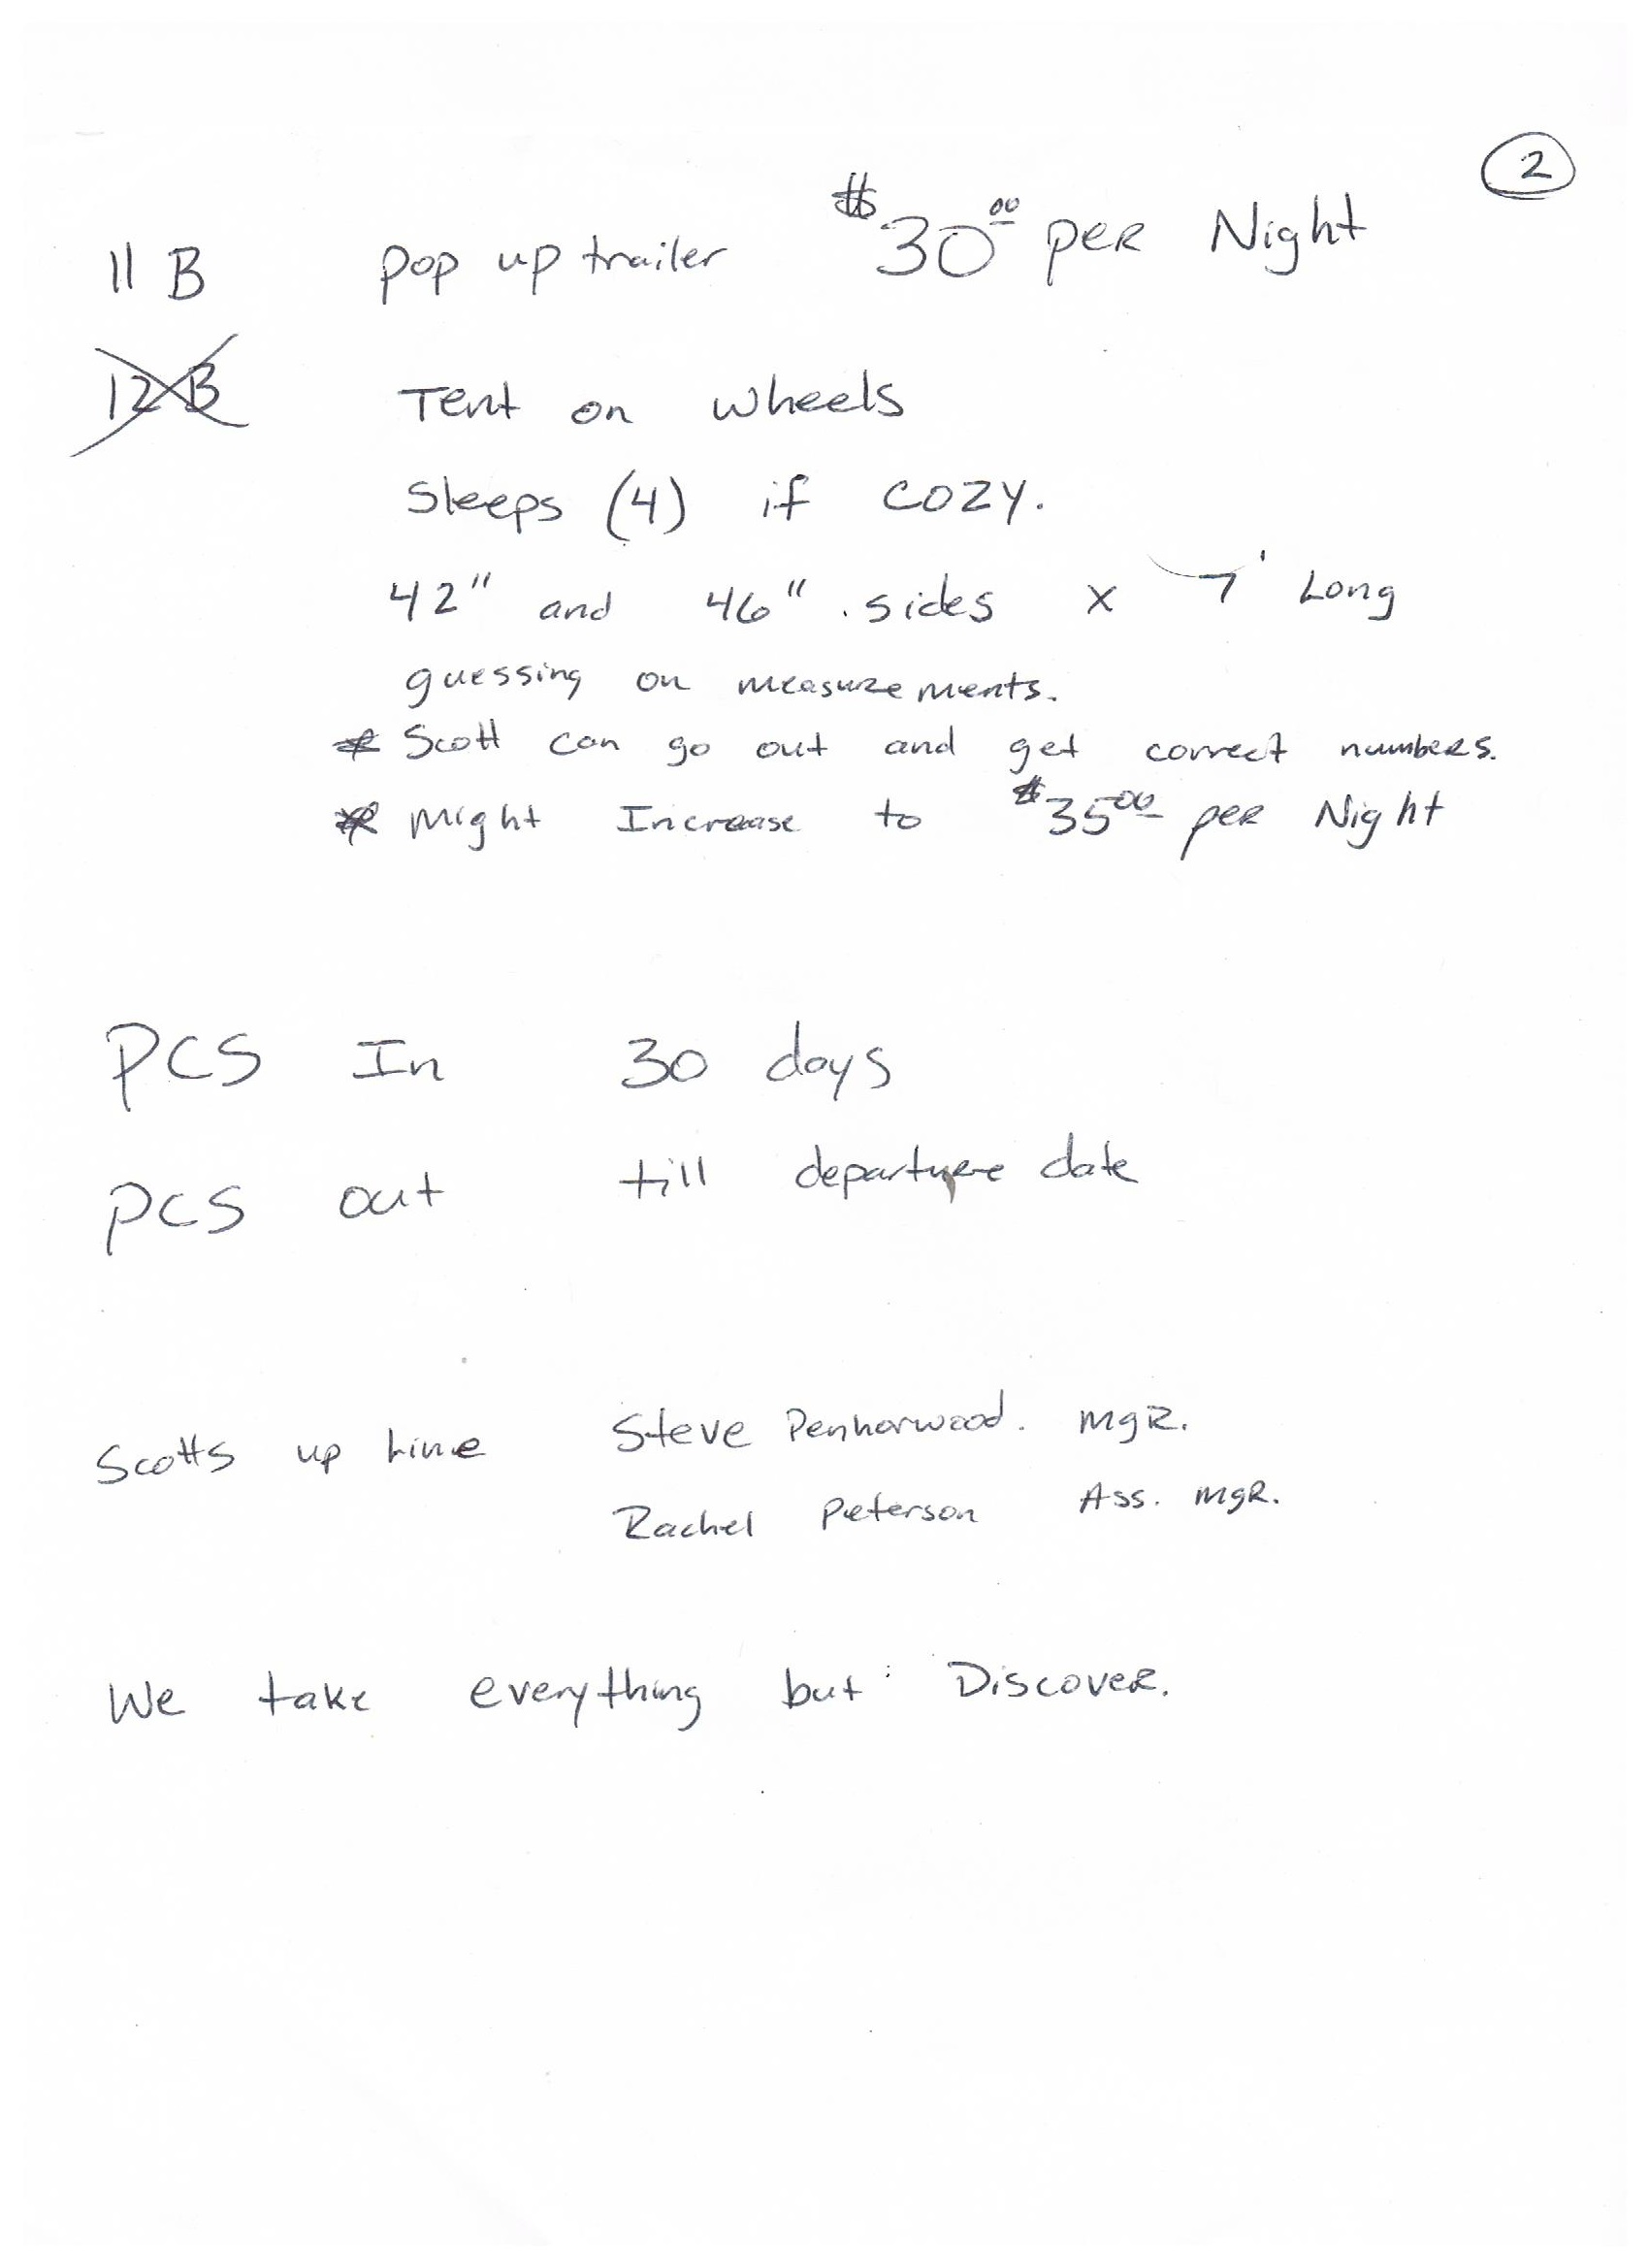 2
11 B pop up trailer $30.00 per Night
12 B Tent on wheels
Sleeps (4) if cozy.
42" and 46" sides x 7' Long
guessing on measurements.
* Scott can go out and get correct numbers.
* Might Increase to $35.00 per Night
PCS In 30 days
PCS out till departure date
Scotts up Line Steve Penharwood. Mgr.
Rachel Peterson Ass. Mgr.
We take everything but Discover.